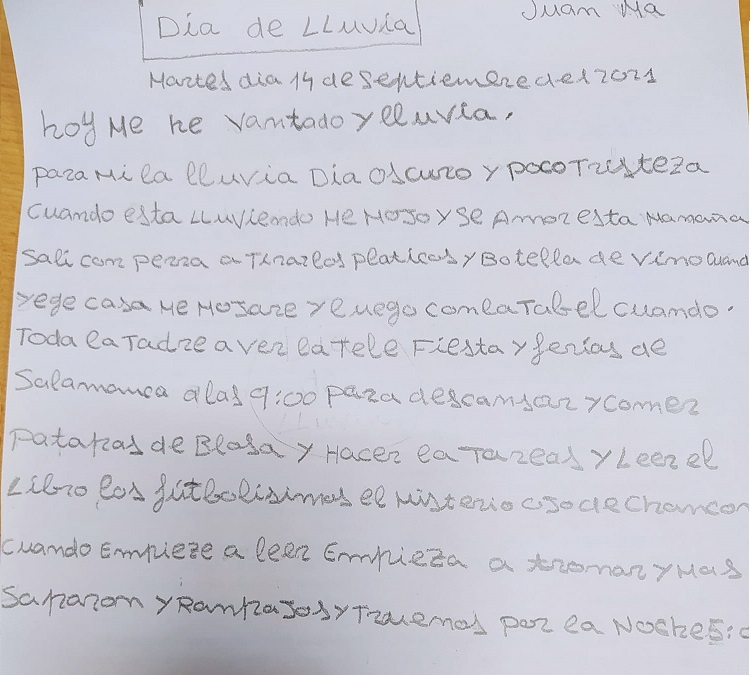 Juan Ma
Dia de LLuvia
Martes dia 14 de septiembre del 2021
hoy Me he vantado y lluvia.
para Mi la lluvia Dia oscuro y poco Tristeza
cuando esta LLuviendo Me Mojo y se Amor esta Mamana
sali con perra a Tirar los platicos y Botella de vino cuand
yege casa Me Mojare y luego con la Tabel cuando.
Toda la Tadre a ver la Tele Fiesta y ferias de
Salamanca a las 9:00 para descansar y comer
Patatas de Blosa y Hacer la Tareas y Leer el
Libro los fútbolisimos el Misterio de Chancon
cuando Empieze a leer Empieza a tronar y Mas
y y Truenos por la Noche